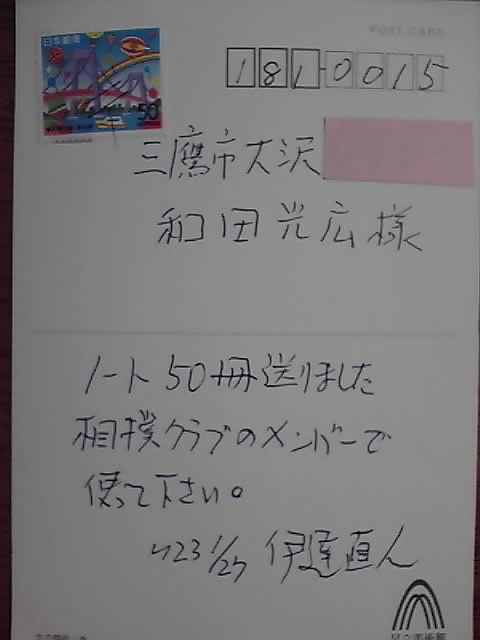 POST CARD
日本郵便
50
181-0015
三鷹市大沢
和田光広様
ノート50冊送りました
相撲クラブのメンバーで
使って下さい。
H23 1/25 伊達直人
足立美術館